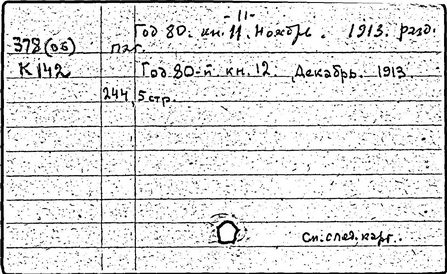 - 11 -
Год 80. кн. 11. Ноябрь. 1913. разд.
378(05) паг.
К142 Год 80-й кн. 12. Декабрь. 1913
244, 5 стр.
См. след. карт.